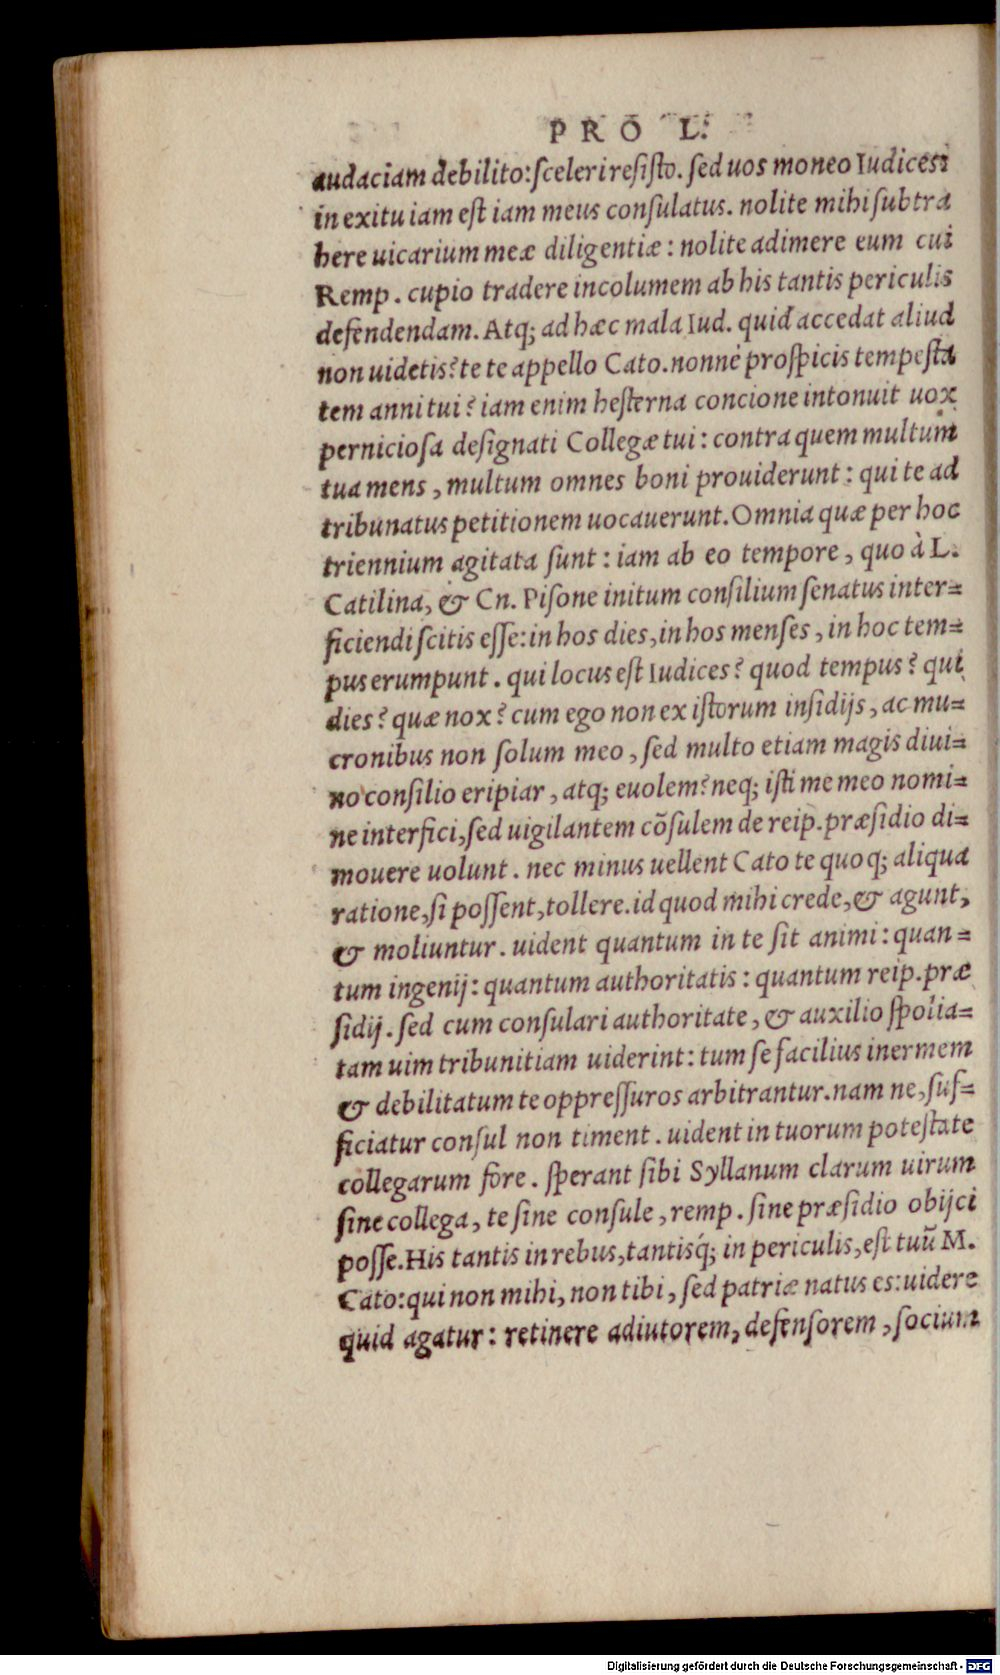 PRO L.
audaciam debilito: sceleri resisto. sed uos moneo Iudices:
in exitu iam est iam meus consulatus. nolite mihi subtra
here uicarium meæ diligentiæ: nolite adimere eum cui
Remp. cupio tradere incolumem ab his tantis periculis
defendendam. Atq; ad hæc mala Iud. quid accedat aliud
non uidetis? te te appello Cato. nonne prospicis tempesta
tem anni tui? iam enim hesterna concione intonuit uox
perniciosa designati Collegæ tui: contra quem multum
tua mens, multum omnes boni prouiderunt: qui te ad
tribunatus petitionem uocauerunt. Omnia quæ per hoc
triennium agitata sunt: iam ab eo tempore, quo à L.
Catilina, & Cn. Pisone initum consilium senatus inter=
ficiendi scitis esse: in hos dies, in hos menses, in hoc tem=
pus erumpunt. qui locus est Iudices? quod tempus? qui
dies? quæ nox? cum ego non ex istorum insidijs, ac mu=
cronibus non solum meo, sed multo etiam magis diui=
no consilio eripiar, atq; euolem? neq; isti me meo nomi=
ne interfici, sed uigilantem cõsulem de reip. præsidio di=
mouere uolunt. nec minus uellent Cato te quoq; aliqua
ratione, si possent, tollere. id quod mihi crede, & agunt,
& moliuntur. uident quantum in te sit animi: quan=
tum ingenij: quantum authoritatis: quantum reip. præ
sidij. sed cum consulari authoritate, & auxilio spolia=
tam uim tribunitiam uiderint: tum se facilius inermem
& debilitatum te oppressuros arbitrantur. nam ne, suf=
ficiatur consul non timent. uident in tuorum potestate
collegarum fore. sperant sibi Syllanum clarum uirum
sine collega, te sine consule, remp. sine præsidio obijci
posse. His tantis in rebus, tantisq́; in periculis, est tuũ M.
Cato: qui non mihi, non tibi, sed patriæ natus es: uidere
quid agatur: retinere adiutorem, defensorem, socium
Digitalisierung gefördert durch die Deutsche Forschungsgemeinschaft - DFG